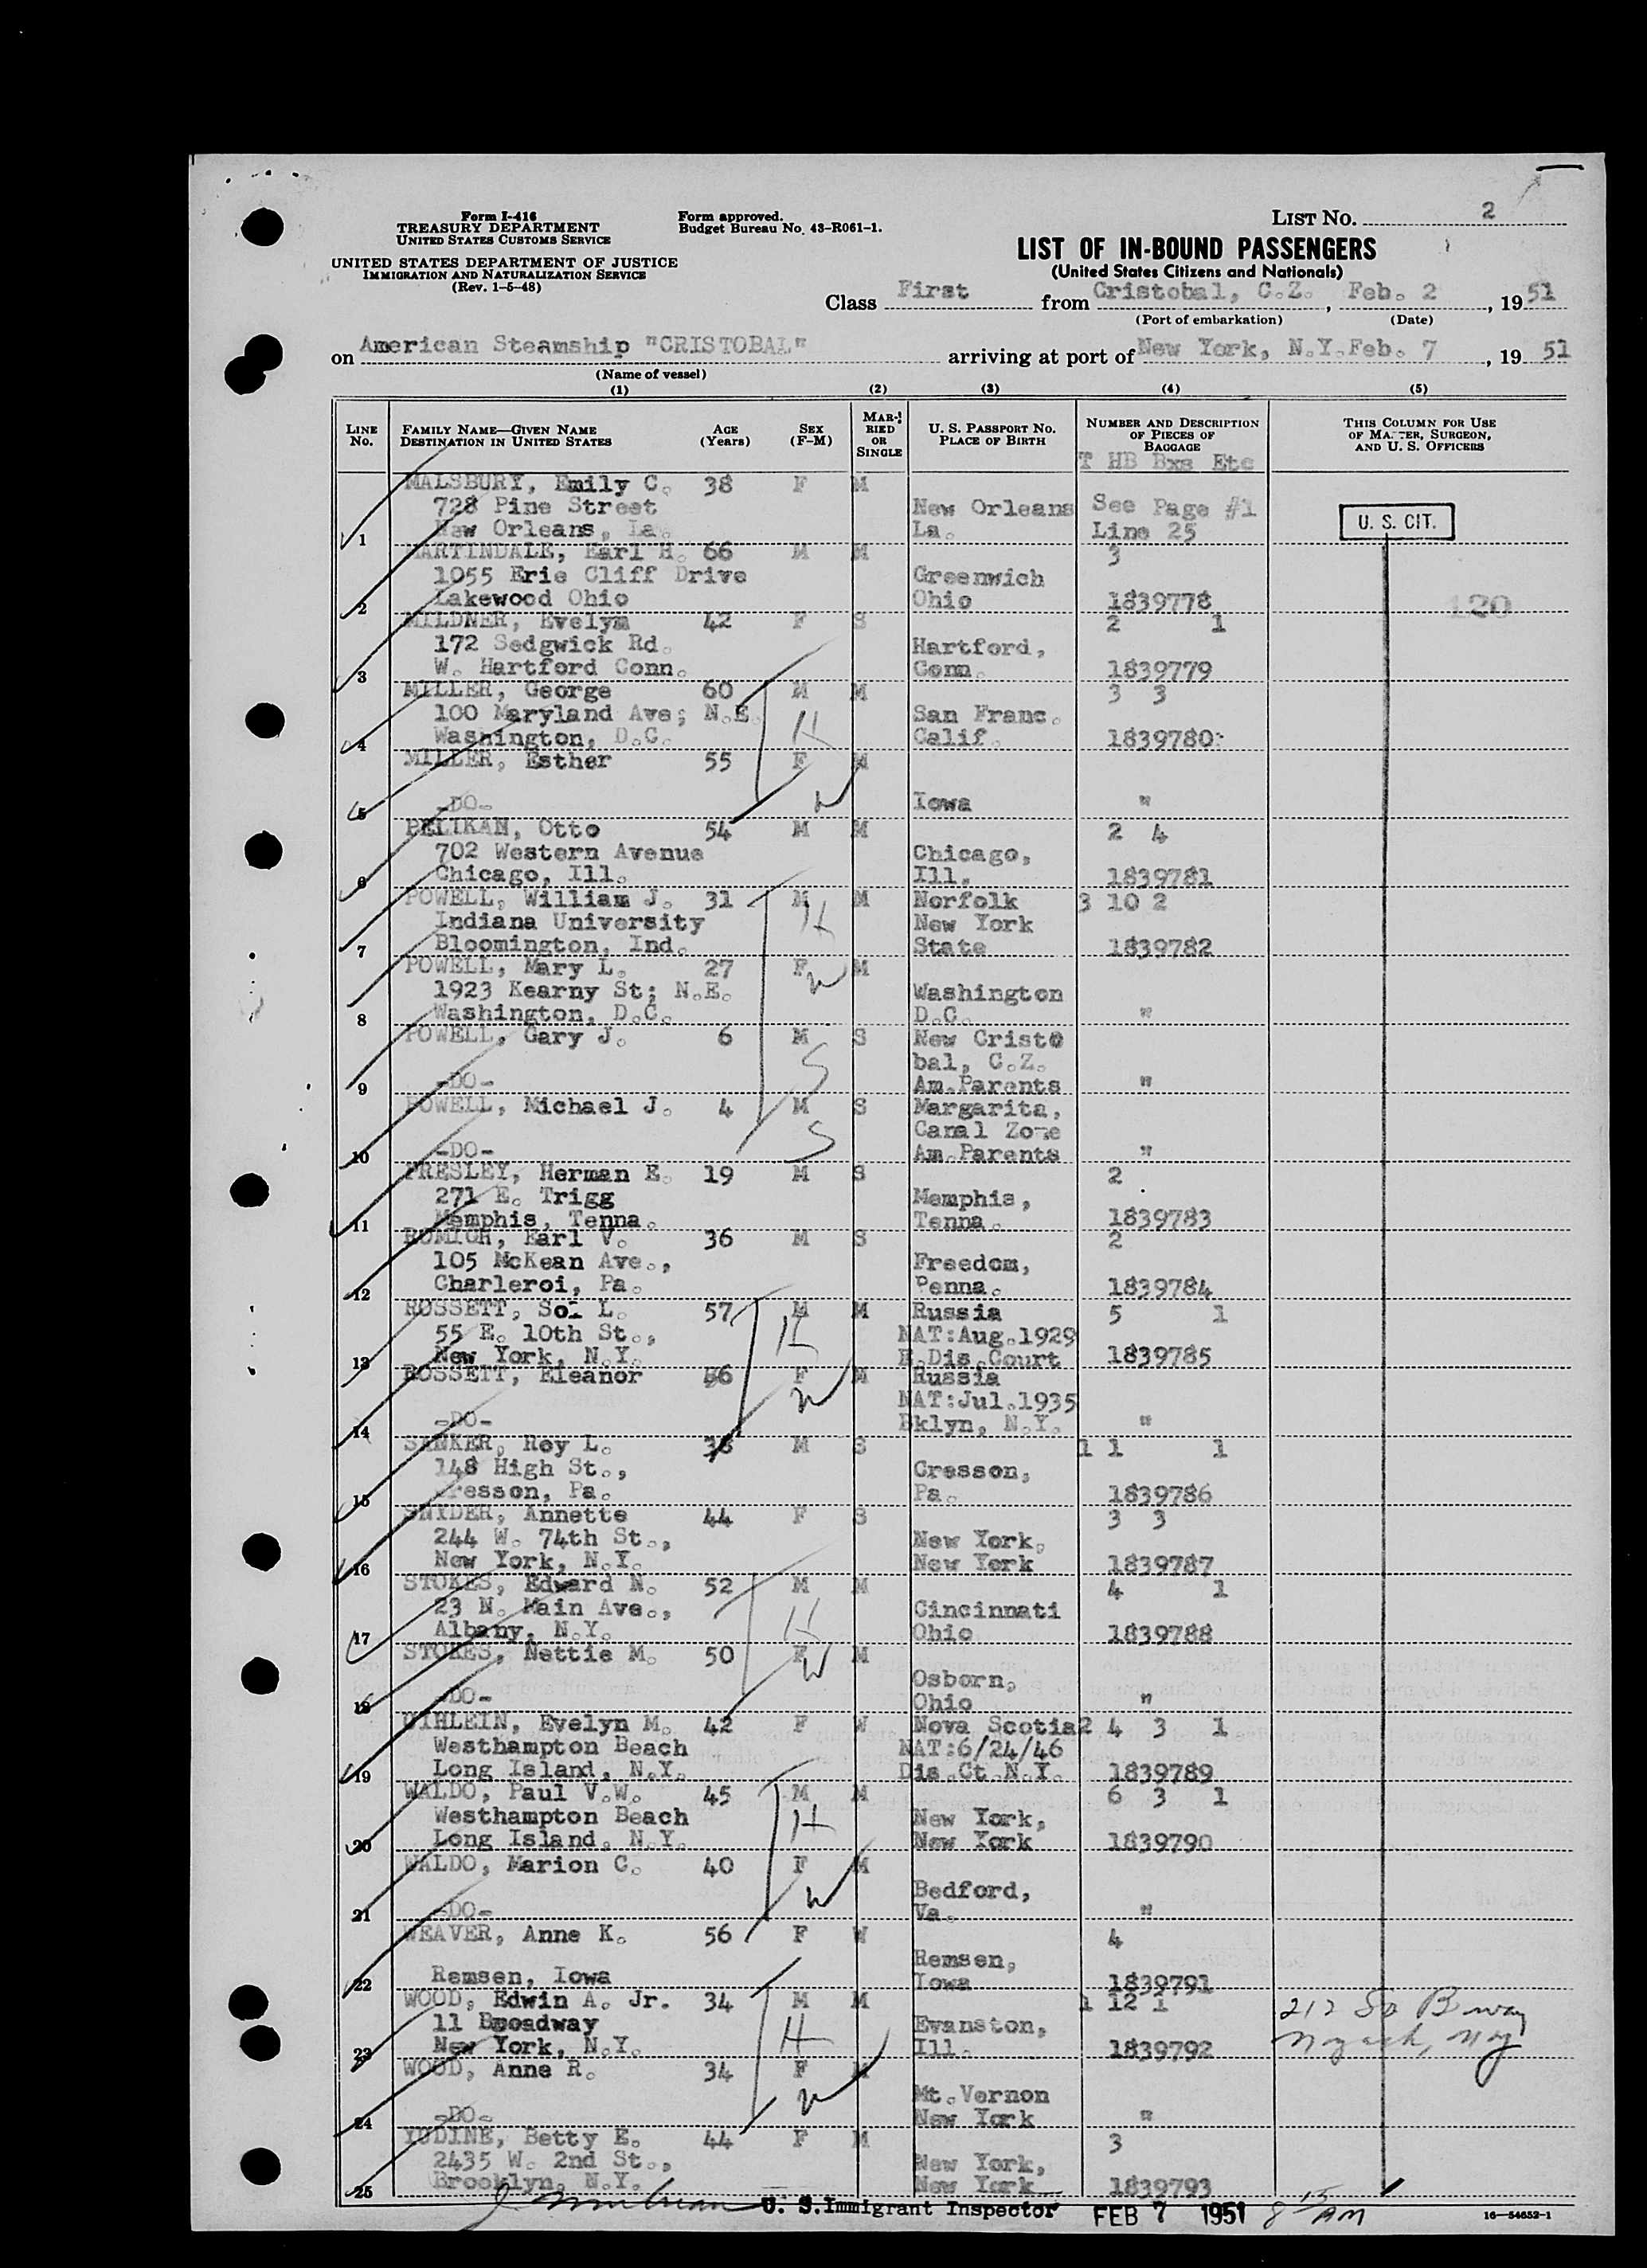 Form I-416
TREASURY DEPARTMENT
UNITED STATES CUSTOMS SERVICE
UNITED STATES DEPARTMENT OF JUSTICE
IMMIGRATION AND NATURALIZATION SERVICE
(Rev. 1-5-48)
Form approved.
Budget Bureau No. 43-R061-1.
LIST NO. 2
LIST OF IN-BOUND PASSENGERS
(United States Citizens and Nationals)
Class First from Cristobal, C.Z., Feb. 2, 1951
(Port of embarkation) (Date)
on American Steamship "CRISTOBAL" arriving at port of New York, N.Y. Feb. 7, 1951
(Name of vessel)
(1) (2) (3) (4) (5)
LINE NO. FAMILY NAME—GIVEN NAME DESTINATION IN UNITED STATES AGE (Years) SEX (F-M) MARRIED OR SINGLE U. S. PASSPORT NO. PLACE OF BIRTH NUMBER AND DESCRIPTION OF PIECES OF BAGGAGE THIS COLUMN FOR USE OF MASTER, SURGEON, AND U. S. OFFICERS
T HB Bxs Etc
MALSBURY, Emily C. 38 F M
728 Pine Street New Orleans See Page #1
1 New Orleans, La. La. Line 25
U. S. CIT.
MARTINDALE, Earl H. 66 M M 3
1055 Erie Cliff Drive Greenwich
2 Lakewood Ohio Ohio 1839778 120
MILDNER, Evelyn 42 F S 2 1
172 Sedgwick Rd. Hartford,
3 W. Hartford Conn. Conn. 1839779
MILLER, George 60 M M 3 3
100 Maryland Ave; N.E. H San Franc.
4 Washington, D.C. Calif. 1839780
MILLER, Esther 55 F M
5 -DO- W Iowa "
PELIKAN, Otto 54 M M 2 4
702 Western Avenue Chicago,
6 Chicago, Ill. Ill. 1839781
POWELL, William J. 31 M M Norfolk 3 10 2
Indiana University H New York
7 Bloomington, Ind. State 1839782
POWELL, Mary L. 27 F M
1923 Kearny St; N.E. W Washington
8 Washington, D.C. D.C. "
POWELL, Gary J. 6 M S New Cristo
S bal, C.Z.
9 -DO- Am.Parents "
POWELL, Michael J. 4 M S Margarita,
S Canal Zone
10 -DO- Am.Parents "
PRESLEY, Herman E. 19 M S 2
271 E. Trigg Memphis,
11 Memphis, Tenna. Tenna. 1839783
ROMICH, Earl V. 36 M S 2
105 McKean Ave., Freedom,
12 Charleroi, Pa. Penna. 1839784
ROSSETT, Sol L. 57 M M Russia 5 1
55 E. 10th St., H NAT:Aug.1929
13 New York, N.Y. E.Dis.Court 1839785
ROSSETT, Eleanor 56 F M Russia
W NAT:Jul.1935
14 -DO- Bklyn, N.Y. "
SANKER, Roy L. 38 M S 1 1 1
148 High St., Cresson,
15 Cresson, Pa. Pa. 1839786
SNYDER, Annette 44 F S 3 3
244 W. 74th St., New York,
16 New York, N.Y. New York 1839787
STOKES, Edward N. 52 M M 4 1
23 N. Main Ave., H Cincinnati
17 Albany, N.Y. Ohio 1839788
STOKES, Nettie M. 50 F M
W Osborn,
18 -DO- Ohio "
UIHLEIN, Evelyn M. 42 F W Nova Scotia 2 4 3 1
Westhampton Beach NAT:6/24/46
19 Long Island, N.Y. Dis.Ct.N.Y. 1839789
WALDO, Paul V.W. 45 M M 6 3 1
Westhampton Beach H New York,
20 Long Island, N.Y. New York 1839790
WALDO, Marion C. 40 F M
W Bedford,
21 -DO- Va. "
WEAVER, Anne K. 56 F W 4
Remsen,
22 Remsen, Iowa Iowa 1839791
WOOD, Edwin A. Jr. 34 M M 1 12 1 212 So Bway
11 Broadway H Evanston, Nyack, NY
23 New York, N.Y. Ill. 1839792
WOOD, Anne R. 34 F M
W Mt.Vernon
24 -DO- New York "
YUDINE, Betty E. 44 F M 3
2435 W. 2nd St., New York,
25 Brooklyn, N.Y. New York 1839793
U. S. Immigrant Inspector FEB 7 1951 8 15 AM
16-54652-1